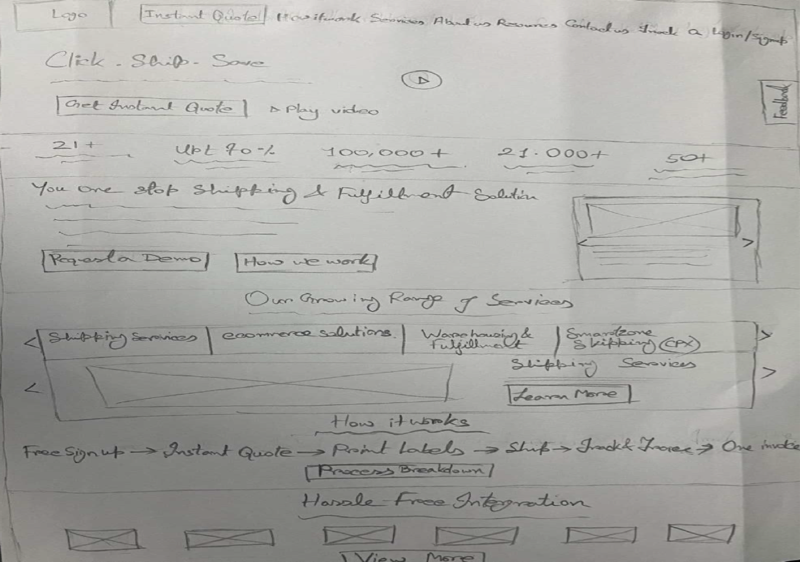 Logo
Instant Quote How it work Services About us Resources Contact us Track Q Login/Signup
Click - Ship - Save
Get Instant Quote ▷ Play video
Feedback
21+ Upt 90-% 100,000+ 21.000+ 50+
You One stop Shipping & Fulfillment Solution
Request a Demo How we work
Our Growing Range of Services
< Shipping Services ecommerce solutions. Warehousing & Fulfillment Smartzone Shipping (CPX) >
< Shipping Services >
Learn More
How it works
Free Sign up → Instant Quote → Print Labels → Ship → Track & Trace → One invoice
Process Breakdown
Hassle Free Integration
View More